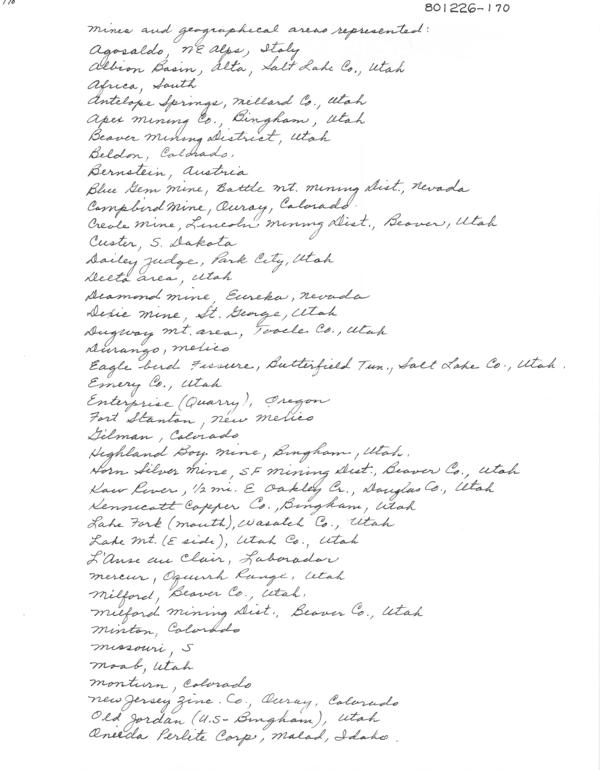 801226-170
Mines and geographical areas represented:
Agosaldo, NE Alps, Italy
Albion Basin, Alta, Salt Lake Co., Utah
Africa, South
Antelope Springs, Millard Co., Utah
Apex Mining Co., Bingham, Utah
Beaver Mining District, Utah
Beldon, Colorado.
Bernstein, Austria
Blue Gem Mine, Battle Mt. Mining Dist., Nevada
Campbird Mine, Ouray, Colorado.
Creole Mine, Lincoln Mining Dist., Beaver, Utah
Custer, S. Dakota
Dailey Judge, Park City, Utah
Delta area, Utah
Diamond Mine, Eureka, Nevada
Dixie Mine, St. George, Utah
Dugway Mt. area, Tooele Co., Utah
Durango, Mexico
Eagle bird Fissure, Butterfield Tun., Salt Lake Co., Utah.
Emery Co., Utah
Enterprise (Quarry), Oregon
Fort Stanton, New Mexico
Gilman, Colorado
Highland Boy Mine, Bingham, Utah.
Horn Silver Mine, S.F Mining Dist., Beaver Co., Utah
Kaw River, 1/2 mi. E Oakley Cr., Douglas Co., Utah
Kennicott Copper Co., Bingham, Utah
Lake Fork (mouth), Wasatch Co., Utah
Lake Mt. (E side), Utah Co., Utah
L'Anse au Clair, Laborador
Mercur, Oquirrh Range, Utah
Milford, Beaver Co., Utah.
Milford Mining Dist., Beaver Co., Utah
Minton, Colorado
Missouri, S
Moab, Utah
Monturn, Colorado
New Jersey Zinc. Co., Ouray, Colorado
Old Jordan (U.S- Bingham), Utah
Oneida Perlite Corp, Malad, Idaho.